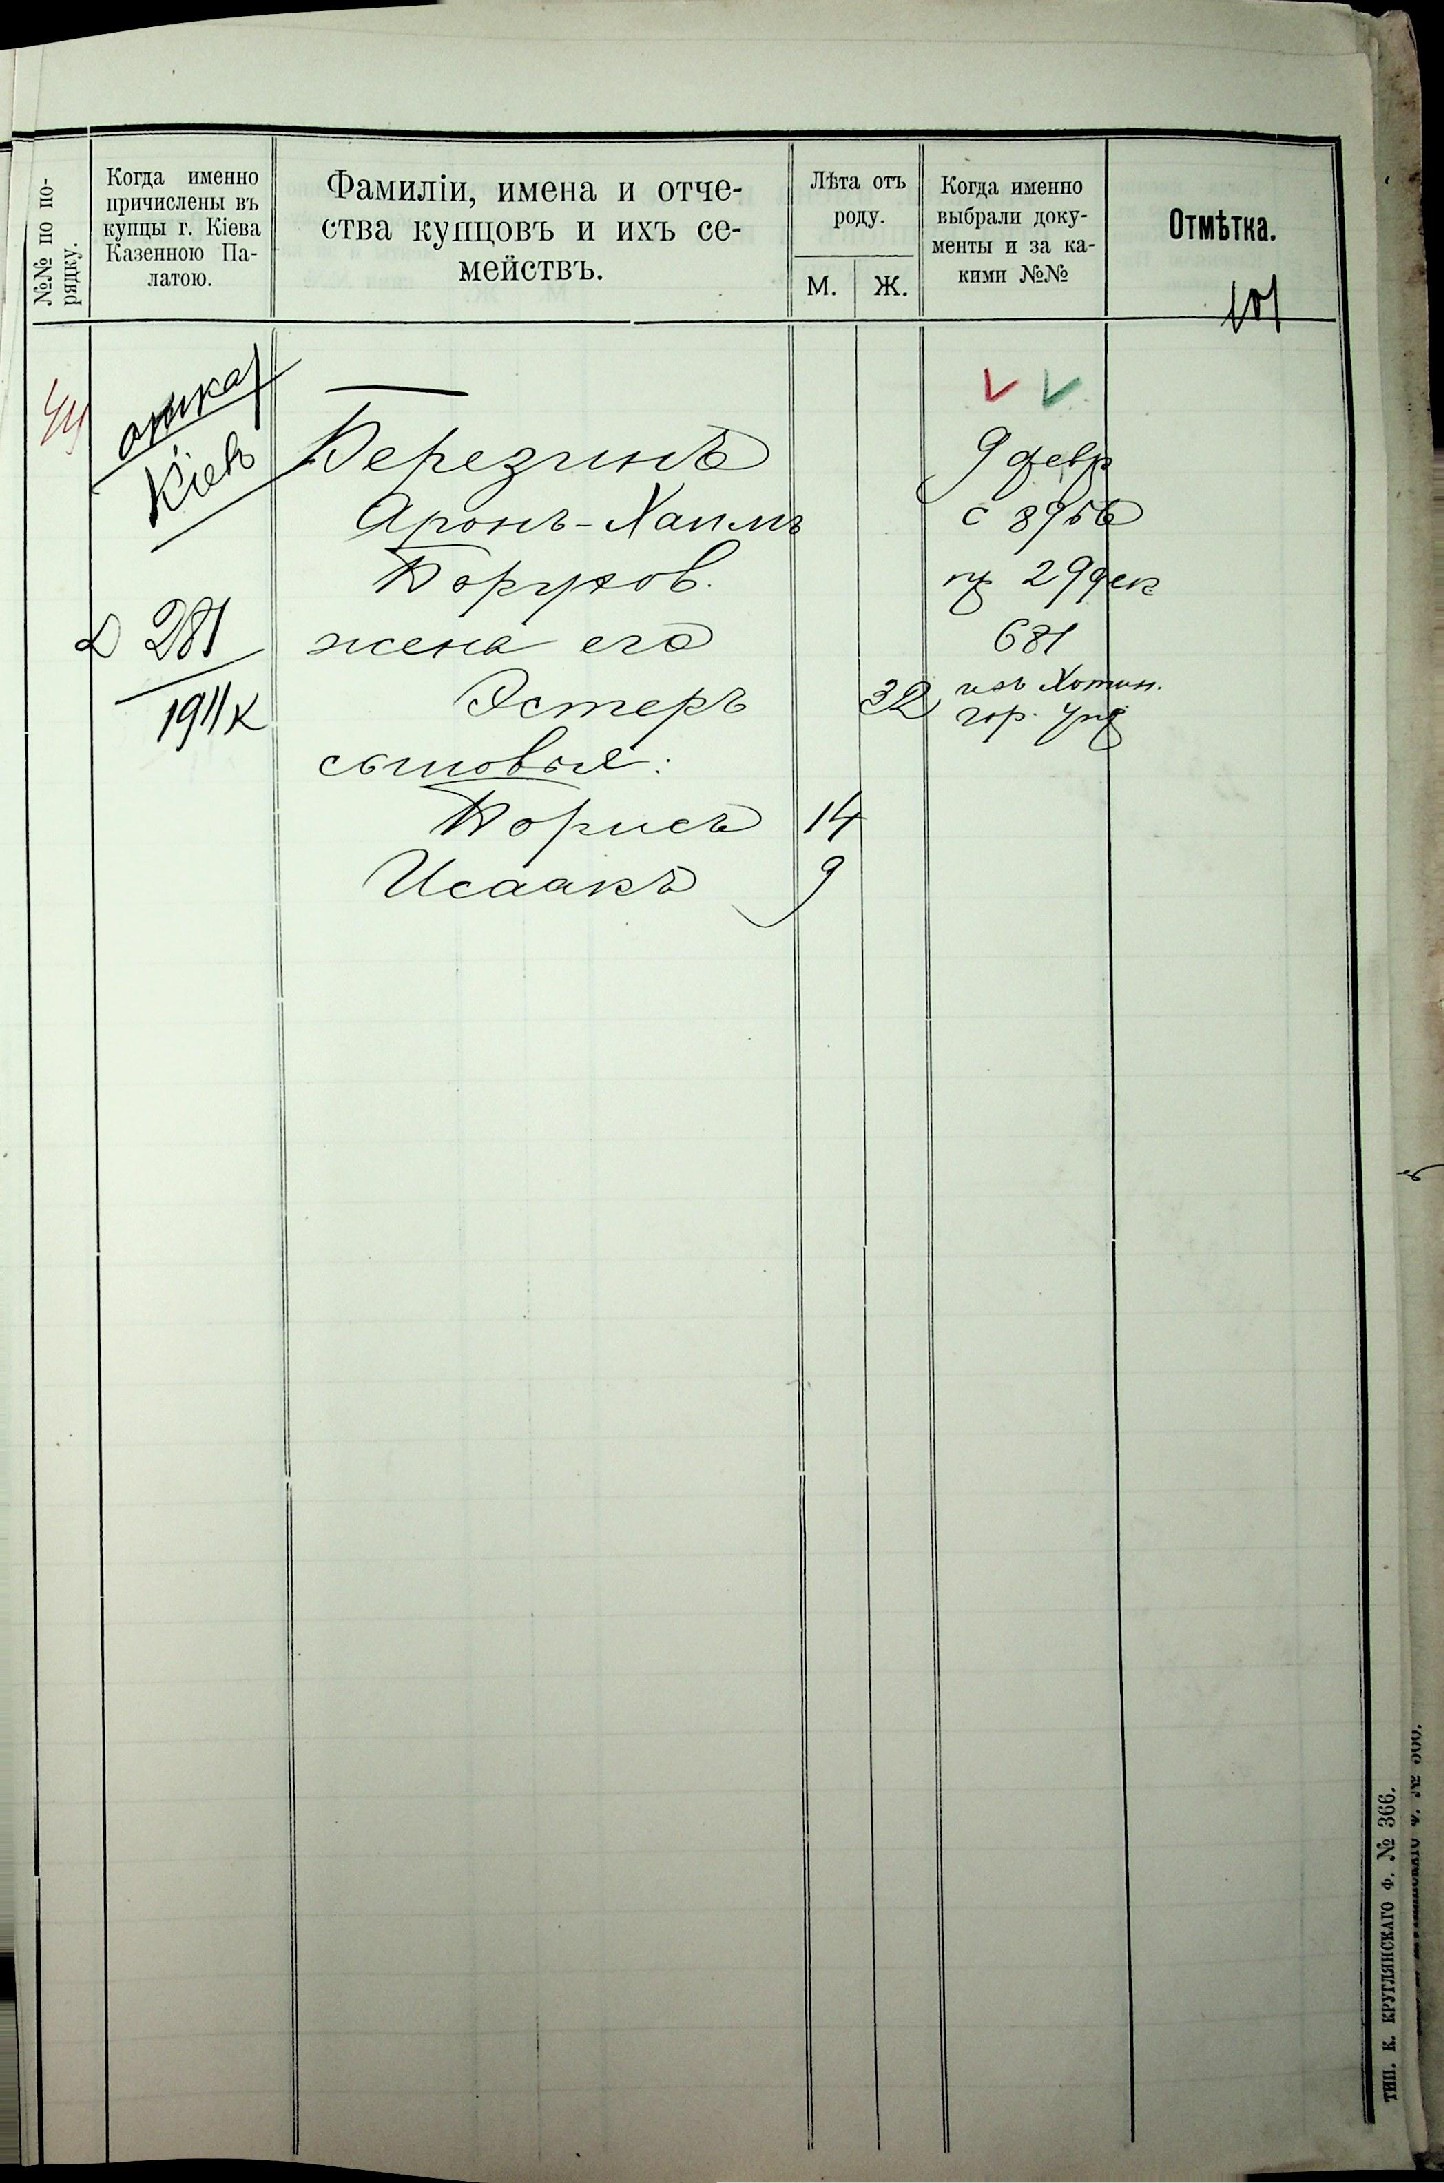 №№ по по-
рядку.
Когда именно
причислены въ
купцы г. Кіева
Казенною Па-
латою.
Фамиліи, имена и отче-
ства купцовъ и ихъ се-
мействъ.
Лѣта отъ
роду.
М.
Ж.
Когда именно
выбрали доку-
менты и за ка-
кими №№
Отмѣтка.
101
Кіев
Березинъ
9 февр
Аронъ-Хаимъ
с 8956
Борухов.
29 дек
281
жена его
681
1911 к
Эстеръ
32
изъ Хотин.
гор. Упр
сыновья:
Борисъ
14
Исаакъ
9
ТИП. К. КРУГЛЯНСКАГО Ф. № 366.